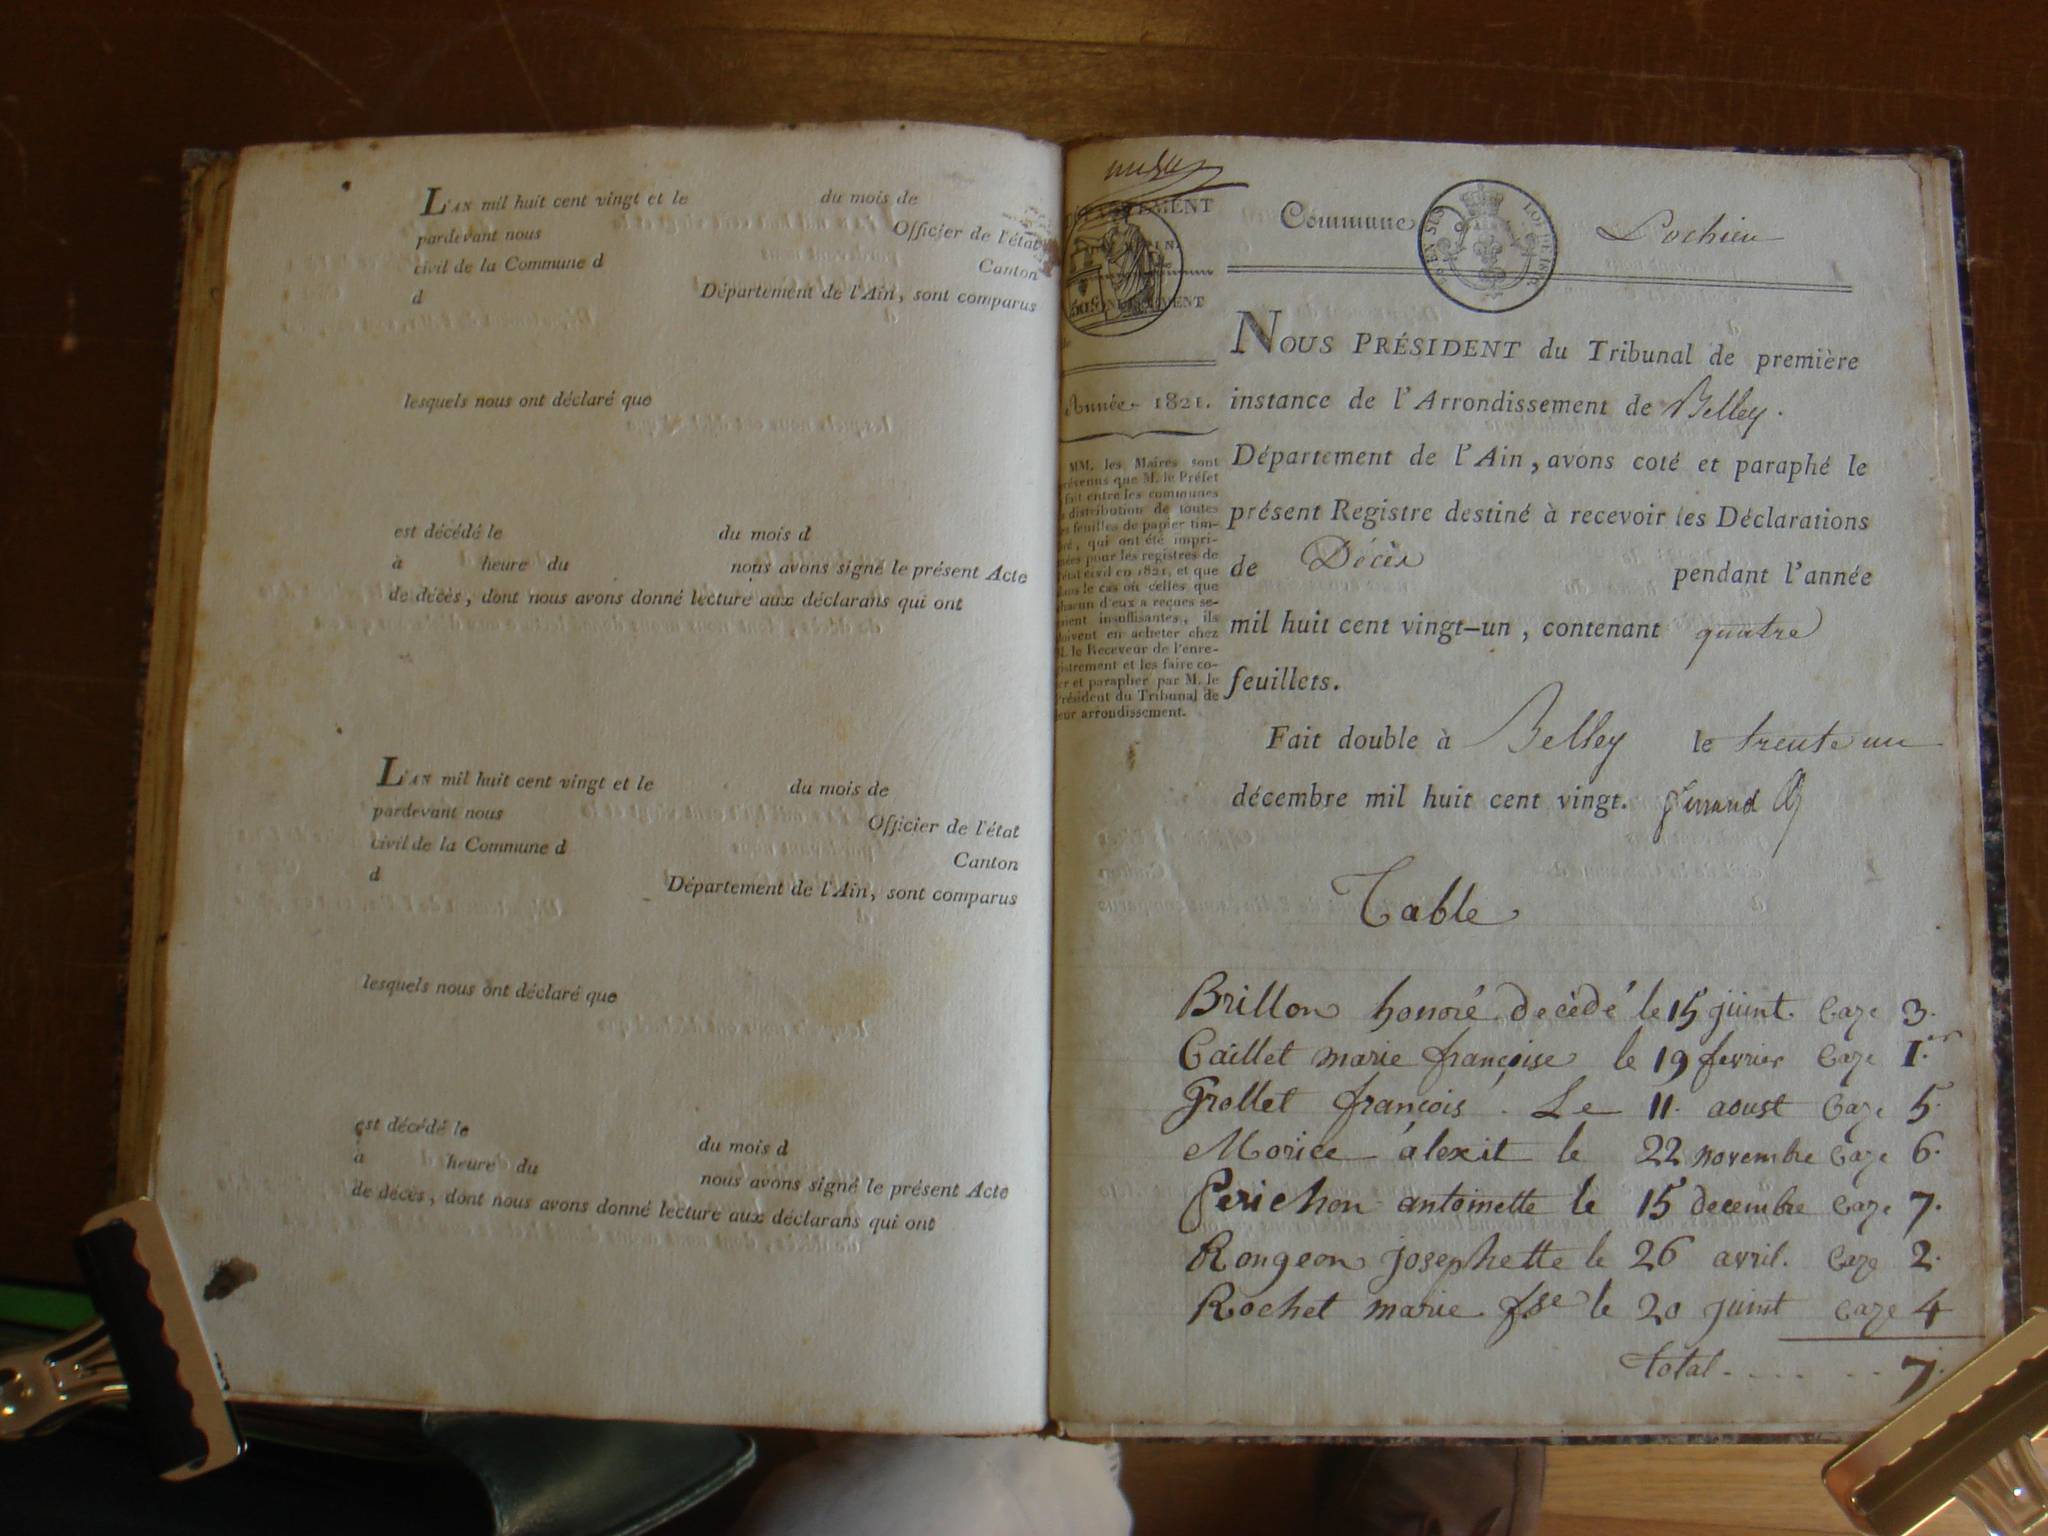 L'AN mil huit cent vingt et le du mois de
pardevant nous Officier de l'état
civil de la Commune d Canton
d Département de l'Ain, sont comparus
lesquels nous ont déclaré que
est décédé le du mois d
à heure du nous avons signé le présent Acte
de décès, dont nous avons donné lecture aux déclarans qui ont
L'AN mil huit cent vingt et le du mois de
pardevant nous Officier de l'état
civil de la Commune d Canton
d Département de l'Ain, sont comparus
lesquels nous ont déclaré que
est décédé le du mois d
à heure du nous avons signé le présent Acte
de décès, dont nous avons donné lecture aux déclarans qui ont
DÉPARTEMENT
Année 1821.
MM. les Maires sont
prévenus que M. le Préfet
fait entre les communes
distribution de toutes
les feuilles de papier tim-
bré, qui ont été impri-
mées pour les registres de
l'état civil en 1821, et que
dans le cas où celles que
chacun d'eux a reçues se-
raient insuffisantes, ils
doivent en acheter chez
M. le Receveur de l'enre-
gistrement et les faire co-
ter et parapher par M. le
Président du Tribunal de
leur arrondissement.
Commune Lochieu
NOUS PRÉSIDENT du Tribunal de première
instance de l'Arrondissement de Belley.
Département de l'Ain, avons coté et paraphé le
présent Registre destiné à recevoir les Déclarations
de Décès pendant l'année
mil huit cent vingt-un, contenant quatre
feuillets.
Fait double à Belley le trente un
décembre mil huit cent vingt.
Table
Brillon honoré décédé le 15 juint. Caze 3.
Caillet marie françoise le 19 fevrier Caze 1.er
Grollet françois. Le 11. aoust Caze 5.
Morice alexit le 22 novembre Caze 6.
Perichon antoinette le 15 decembre Caze 7.
Rongeon josephette le 26 avril. Caze 2.
Rochet marie fse le 20 juint caze 4
total 7.